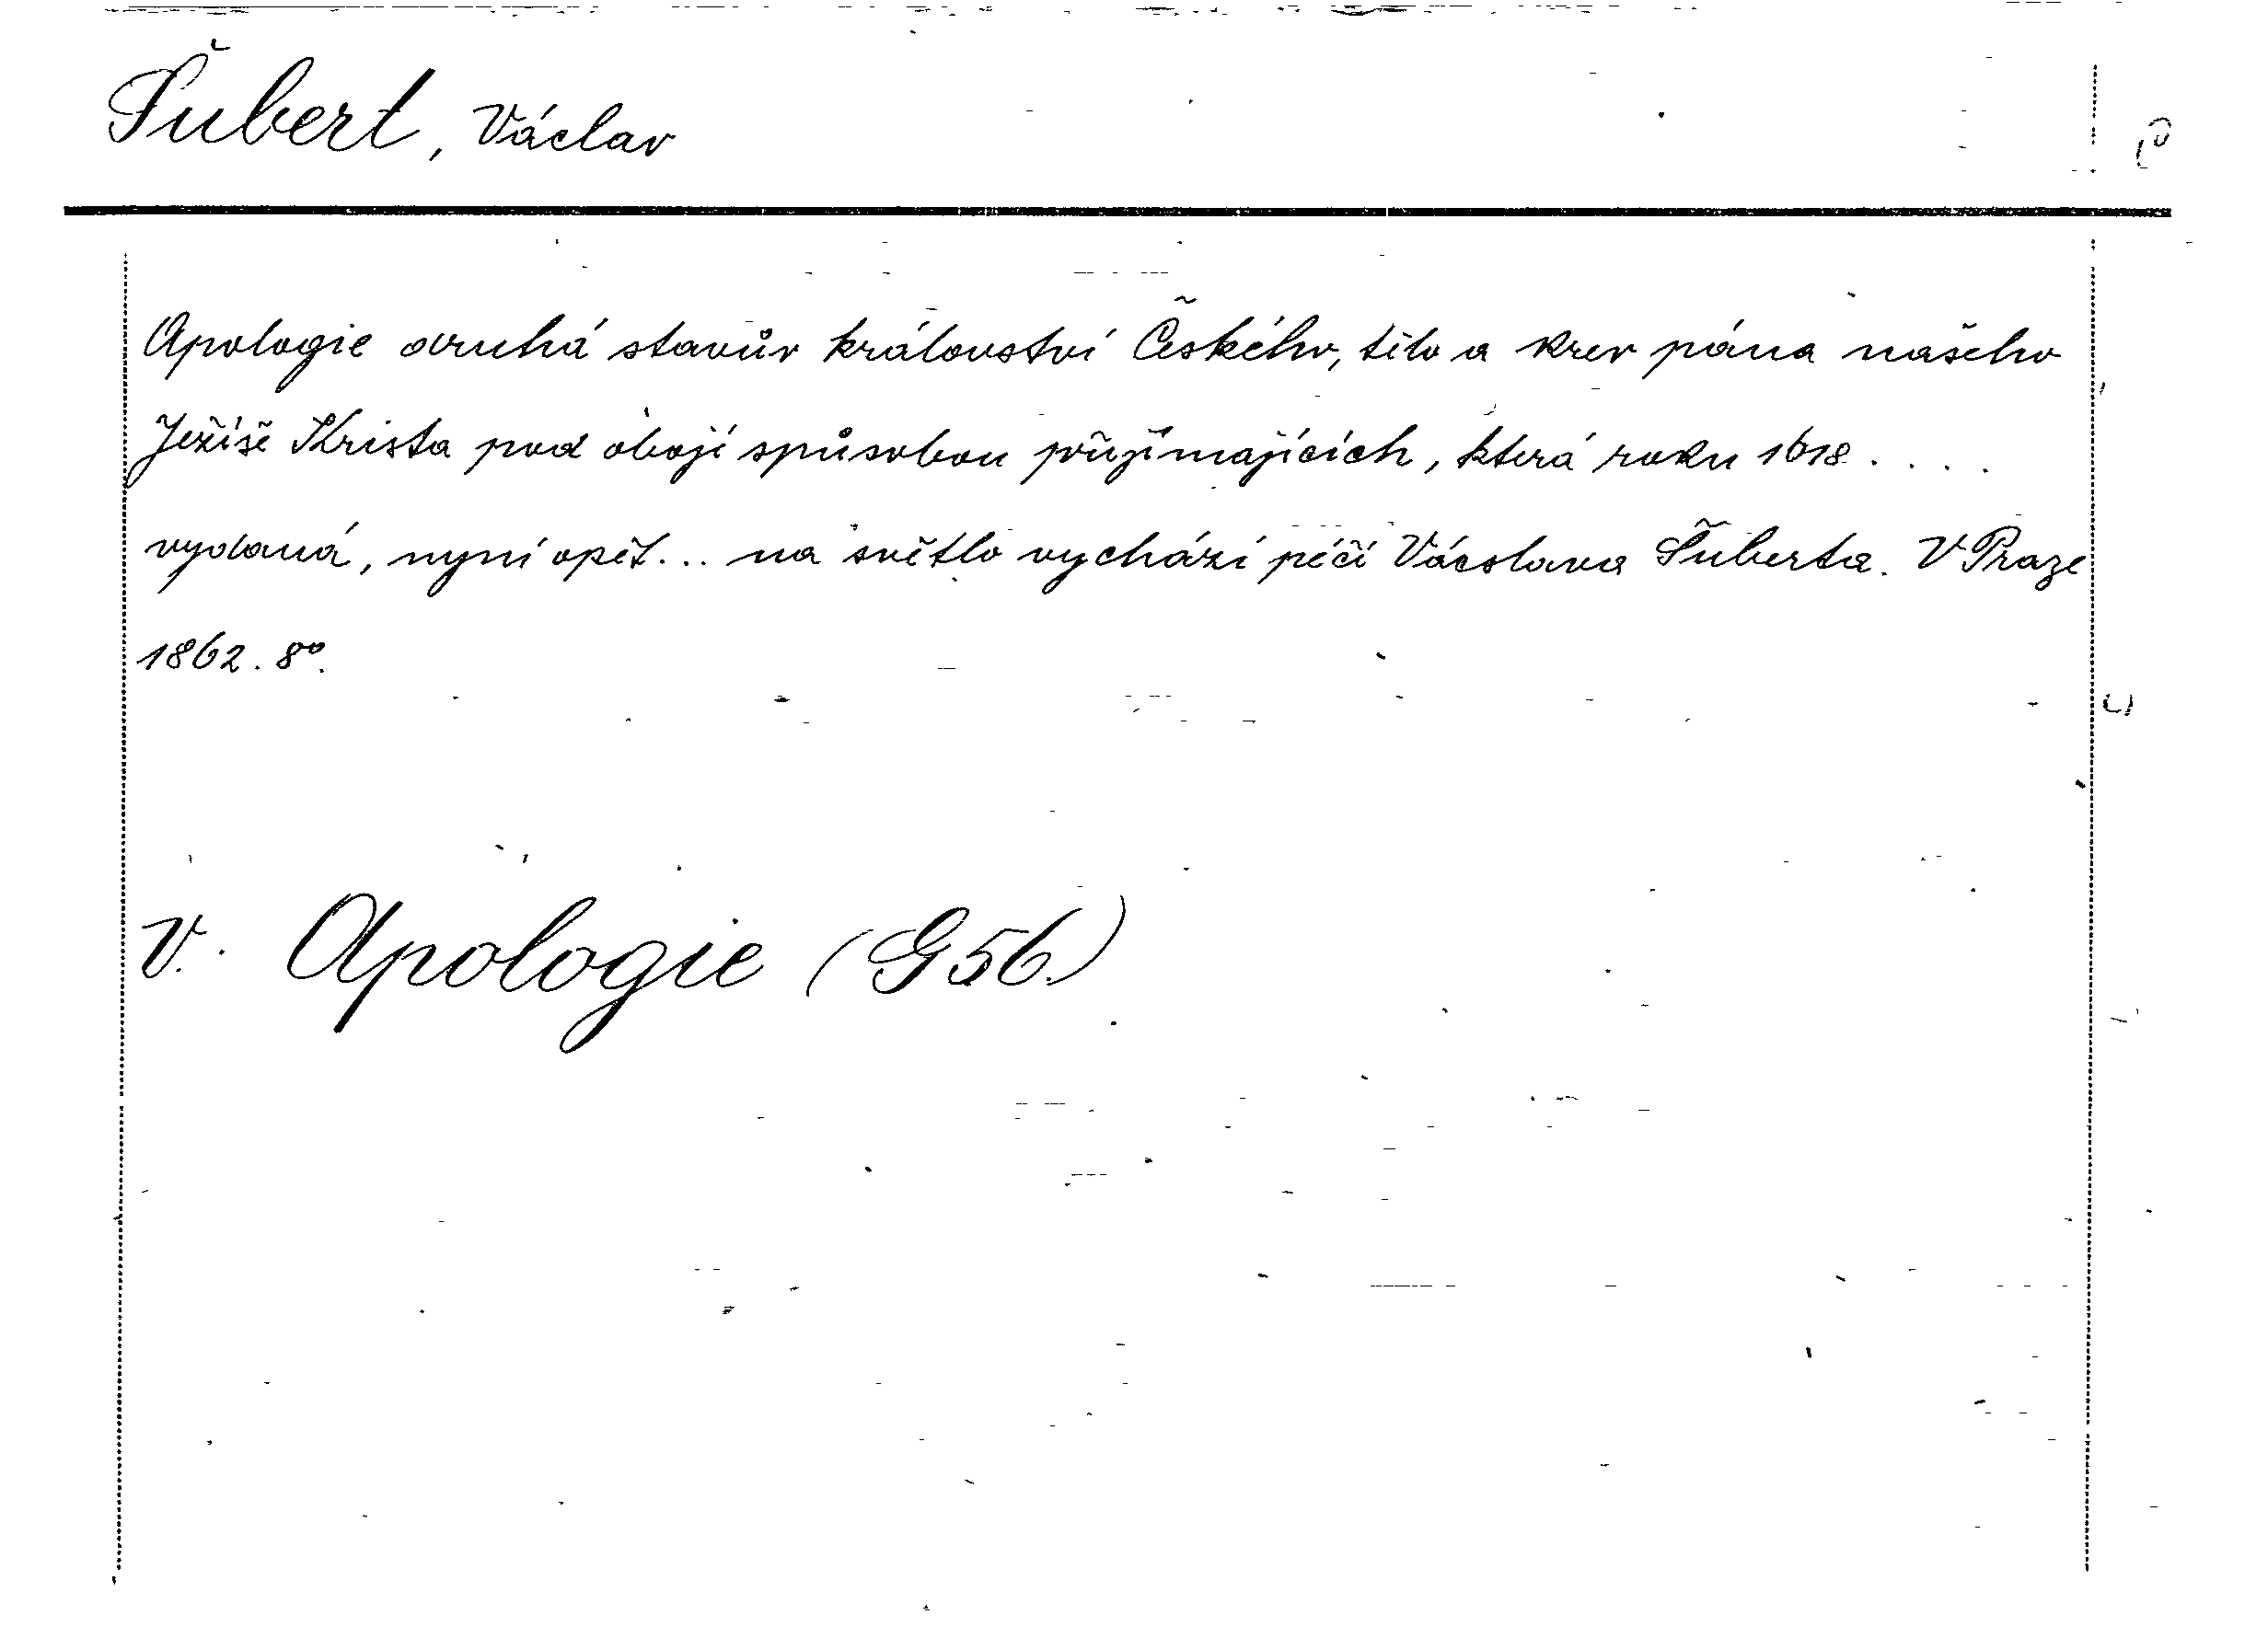 Šubert, Václav
Apologie druhá stavův království Českého, tělo a krev pána našeho
Ježíše Krista pod obojí spůsobou přijímajících, která roku 1618 . . . .
vydaná, nyní opět... na světlo vychází péčí Vácslava Šuberta. V Praze
1862. 8°.
V. Apologie (G 56.)